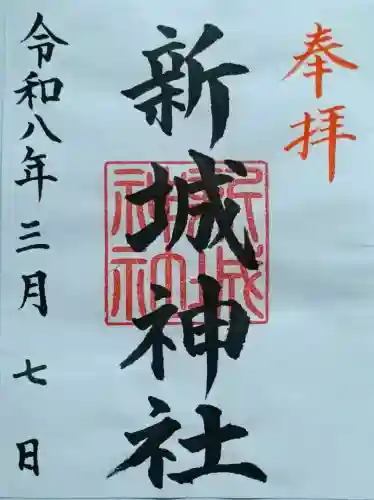 奉拝
新城神社
新城神社
令和八年三月七日